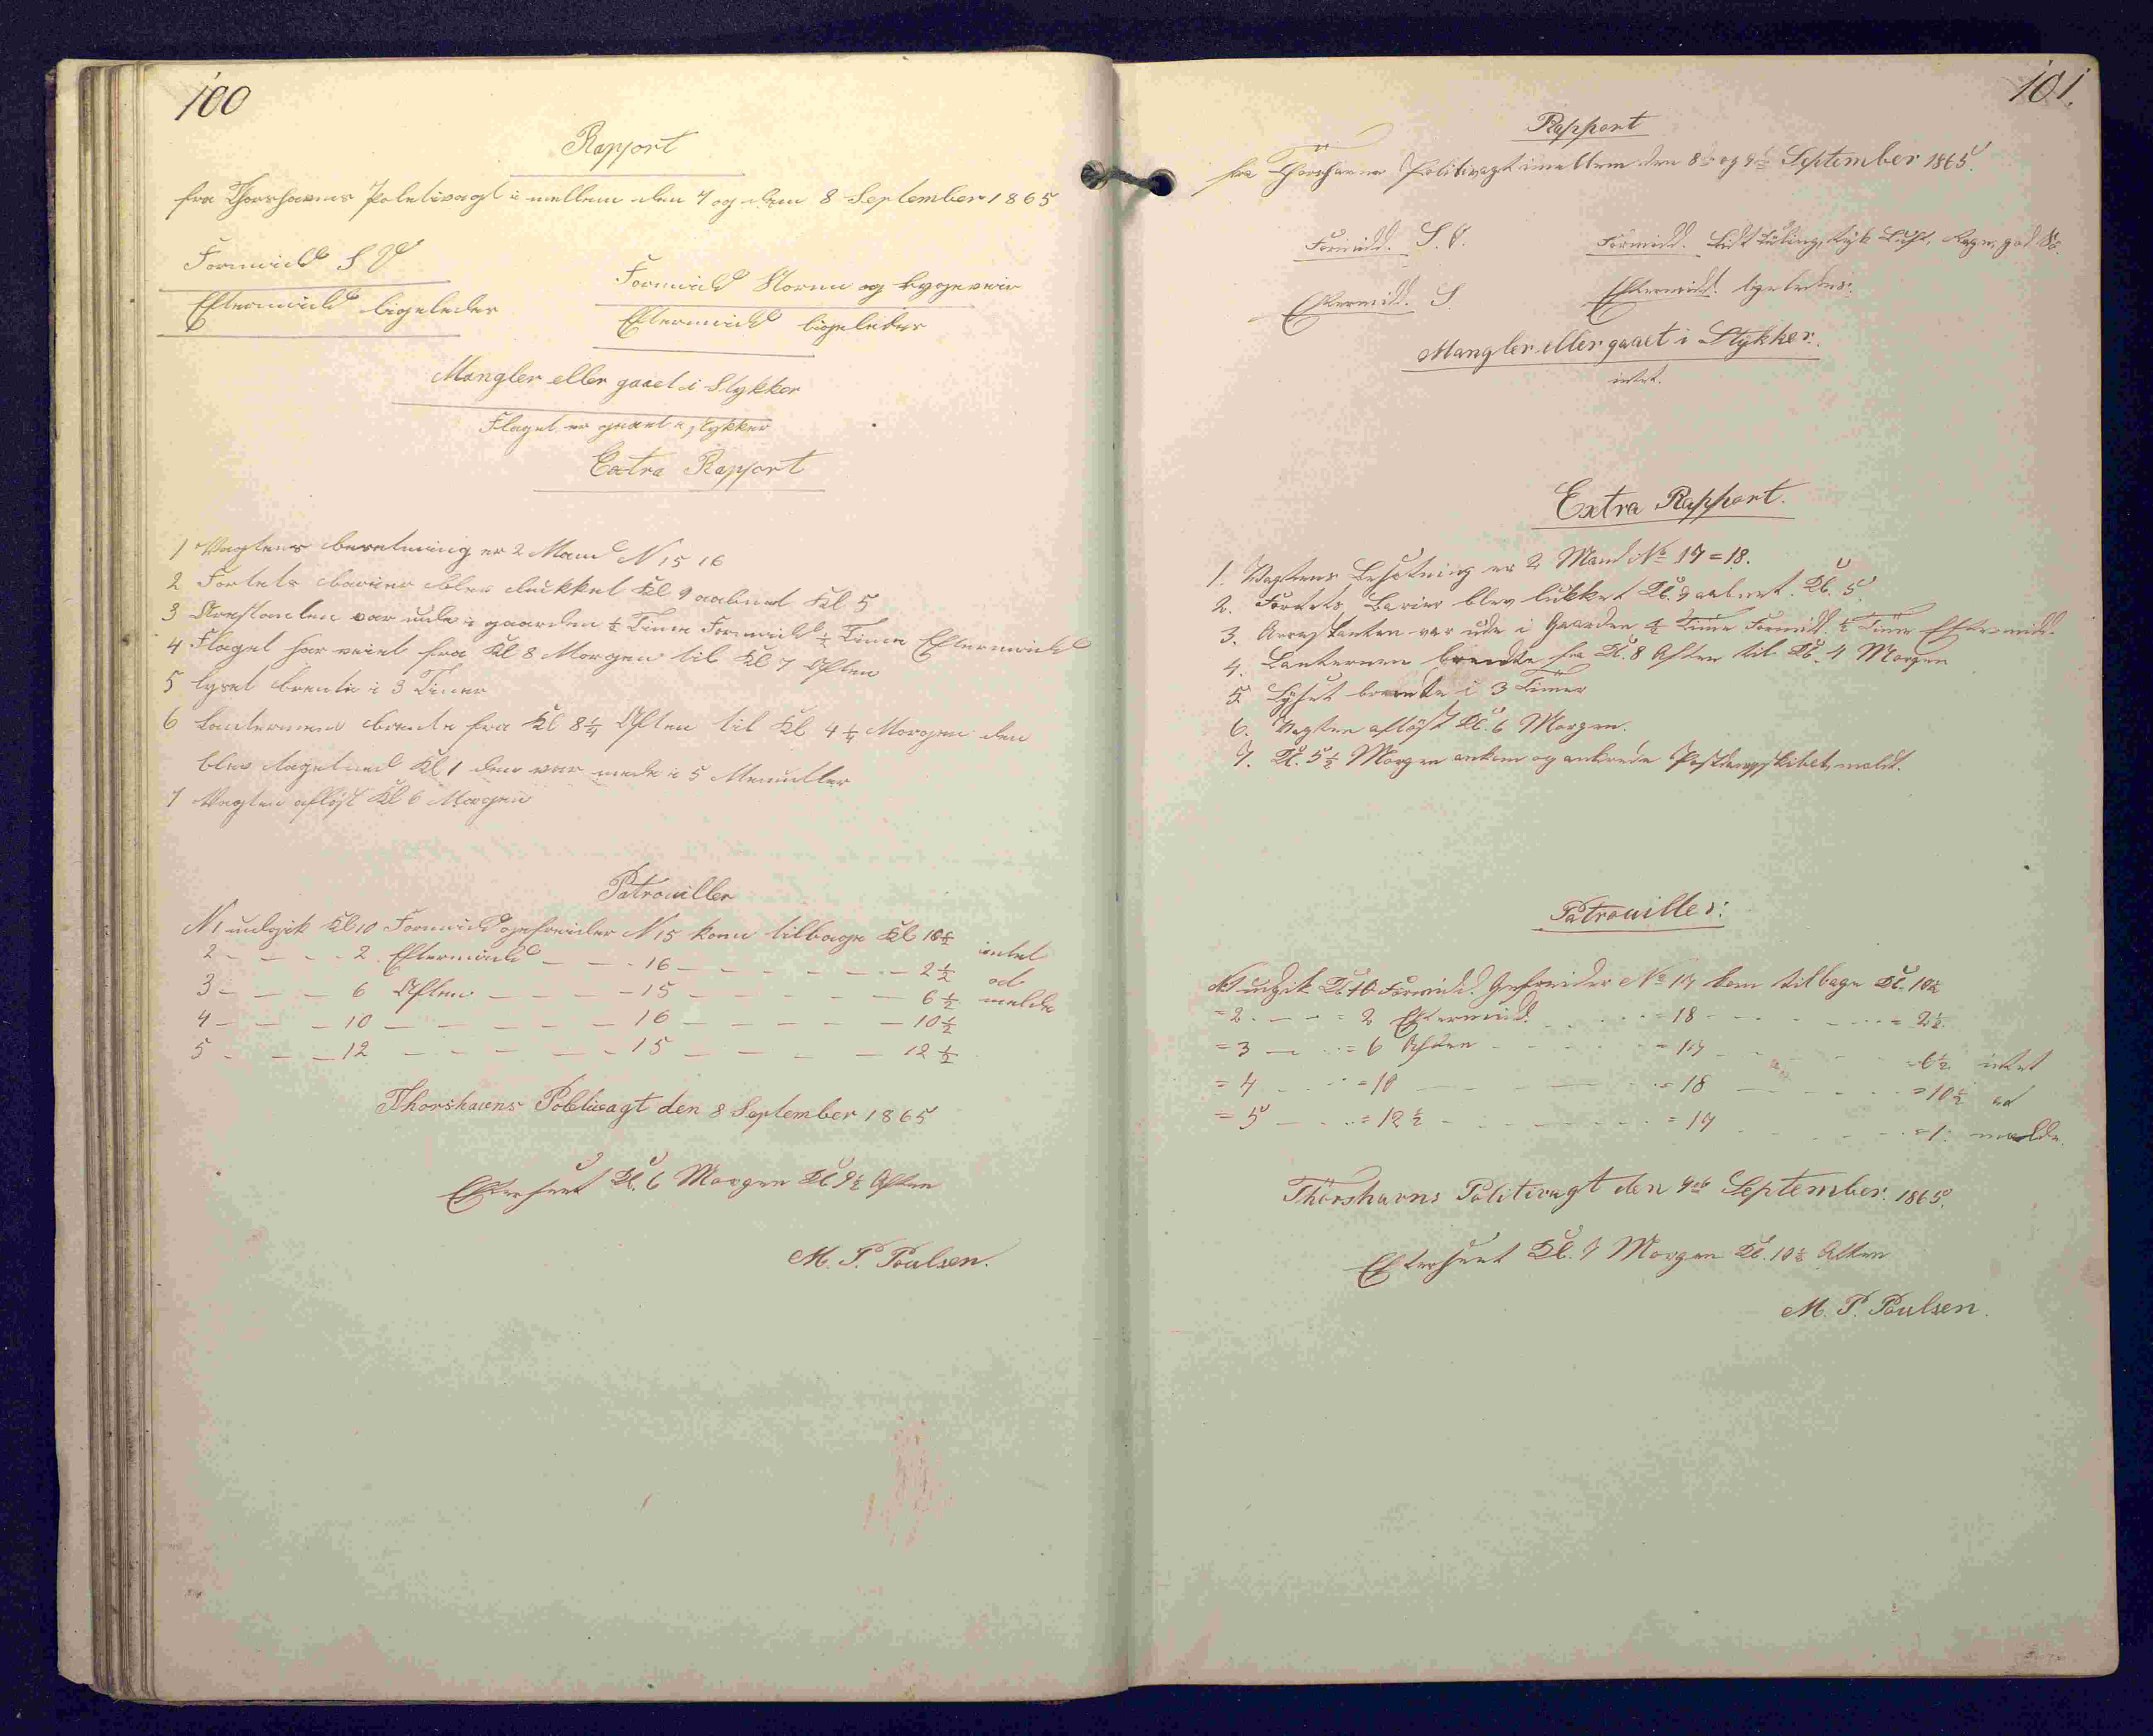 100
Rapport
fra Thorshavns Poletivagt i mellem den 7 og dem 8 September 1865
Formidd S V
Eftermidd ligeledes
Formidd Storm og bygeveir
Eftermidd ligeledes
Mangler eller gaaet i Stykker
Flaget er gaaet i stykker
Extra Rapport
1 Vagtens besetning er 2 Mand N 15 16
2 Fortets barier blev lukket Kl 9 aabnet Kl 5
3 Arestanten var ude i gaarden ½ Time Formidd ½ Time Eftermidd
4 Flaget har veiet fra Kl 8 Morgen til Kl 7 Aften
5 lyset brente i 3 Timer
6 Lanternen brente fra Kl 8¼ Aften til Kl 4¼ Morgen den
blev taget ned Kl 1 den var nede i 5 Menutter
7 Vagten afløst Kl 6 Morgen
Patrouiller
N 1 undgik Kl 10 Formidd gefreider N 15 kom tilbage Kl 10½ intet
2 - - - 2 Eftermidd - - - 16 - - - - - 2½ at
3 - - - 6 Aften - - - - 15 - - - - - 6½ melde
4 - - - 10 - - - - - 16 - - - - - 10½
5 - - - 12 - - - - - 15 - - - - - 12½
Thorshavns Poletivagt den 8 September 1865
Efterseet Kl. 6 Morgen Kl 9½ Aften
M. P. Poulsen.
101.
Rapport
fra Thorshavns Politivagt imellem den 8de og 9de September 1865.
Formidd. S. V.
Eftermidd. S.
Formidd. Lidt Kuling, tyk Luft, Regn, god
Eftermidd. ligeledes.
Mangler eller gaaet i Stykker.
intet.
Extra Rapport.
1. Vagtens Besætning er 2 Mand No 17 = 18.
2. Fortets Barier blev lukket Kl. 9 aabnet. Kl. 5.
3. Arrestanten var ude i Gaarden ½ Time Formidd. ½ Time Eftermidd.
4. Lanternen brendte fra Kl. 8 Aften til Kl. 4 Morgen
5. Lyset brendte i 3 Timer
6. Vagten afløst Kl. 6 Morgen.
7. Kl. 5½ Morgen ankom og ankrede Postdampskibet, meldt.
Patrouiller:
No 1 udgik Kl. 10 Formidd. Gefreider No 17 kom tilbage Kl. 10½
= 2 - - - = 2 Eftermidd. - - - = 18 - - - - = 2½.
= 3 - - - = 6 Aften - - - - = 17 - - - - = 6½ intet
= 4 - - - = 10 - - - - = 18 - - - - = 10½ at
= 5 - - - = 12½ - - - - = 17 - - - - = 1. melde.
Thorshavns Politivagt den 9de September. 1865.
Efterseet Kl. 7 Morgen Kl. 10½ Aften
M. P. Poulsen.